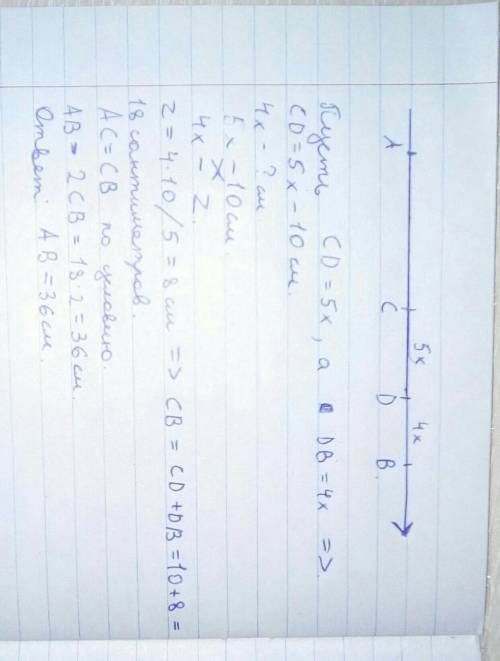 5x 4x
A C D B.
Пусть CD = 5x, а DB = 4x =>
CD = 5x - 10 см.
4x - ? см
5x - 10 см.
4x - Z.
Z = 4·10/5 = 8 см => CB = CD + DB = 10 + 8 =
18 сантиметров.
AC = CB по условию.
AB = 2CB = 18·2 = 36 см.
Ответ: AB = 36 см.